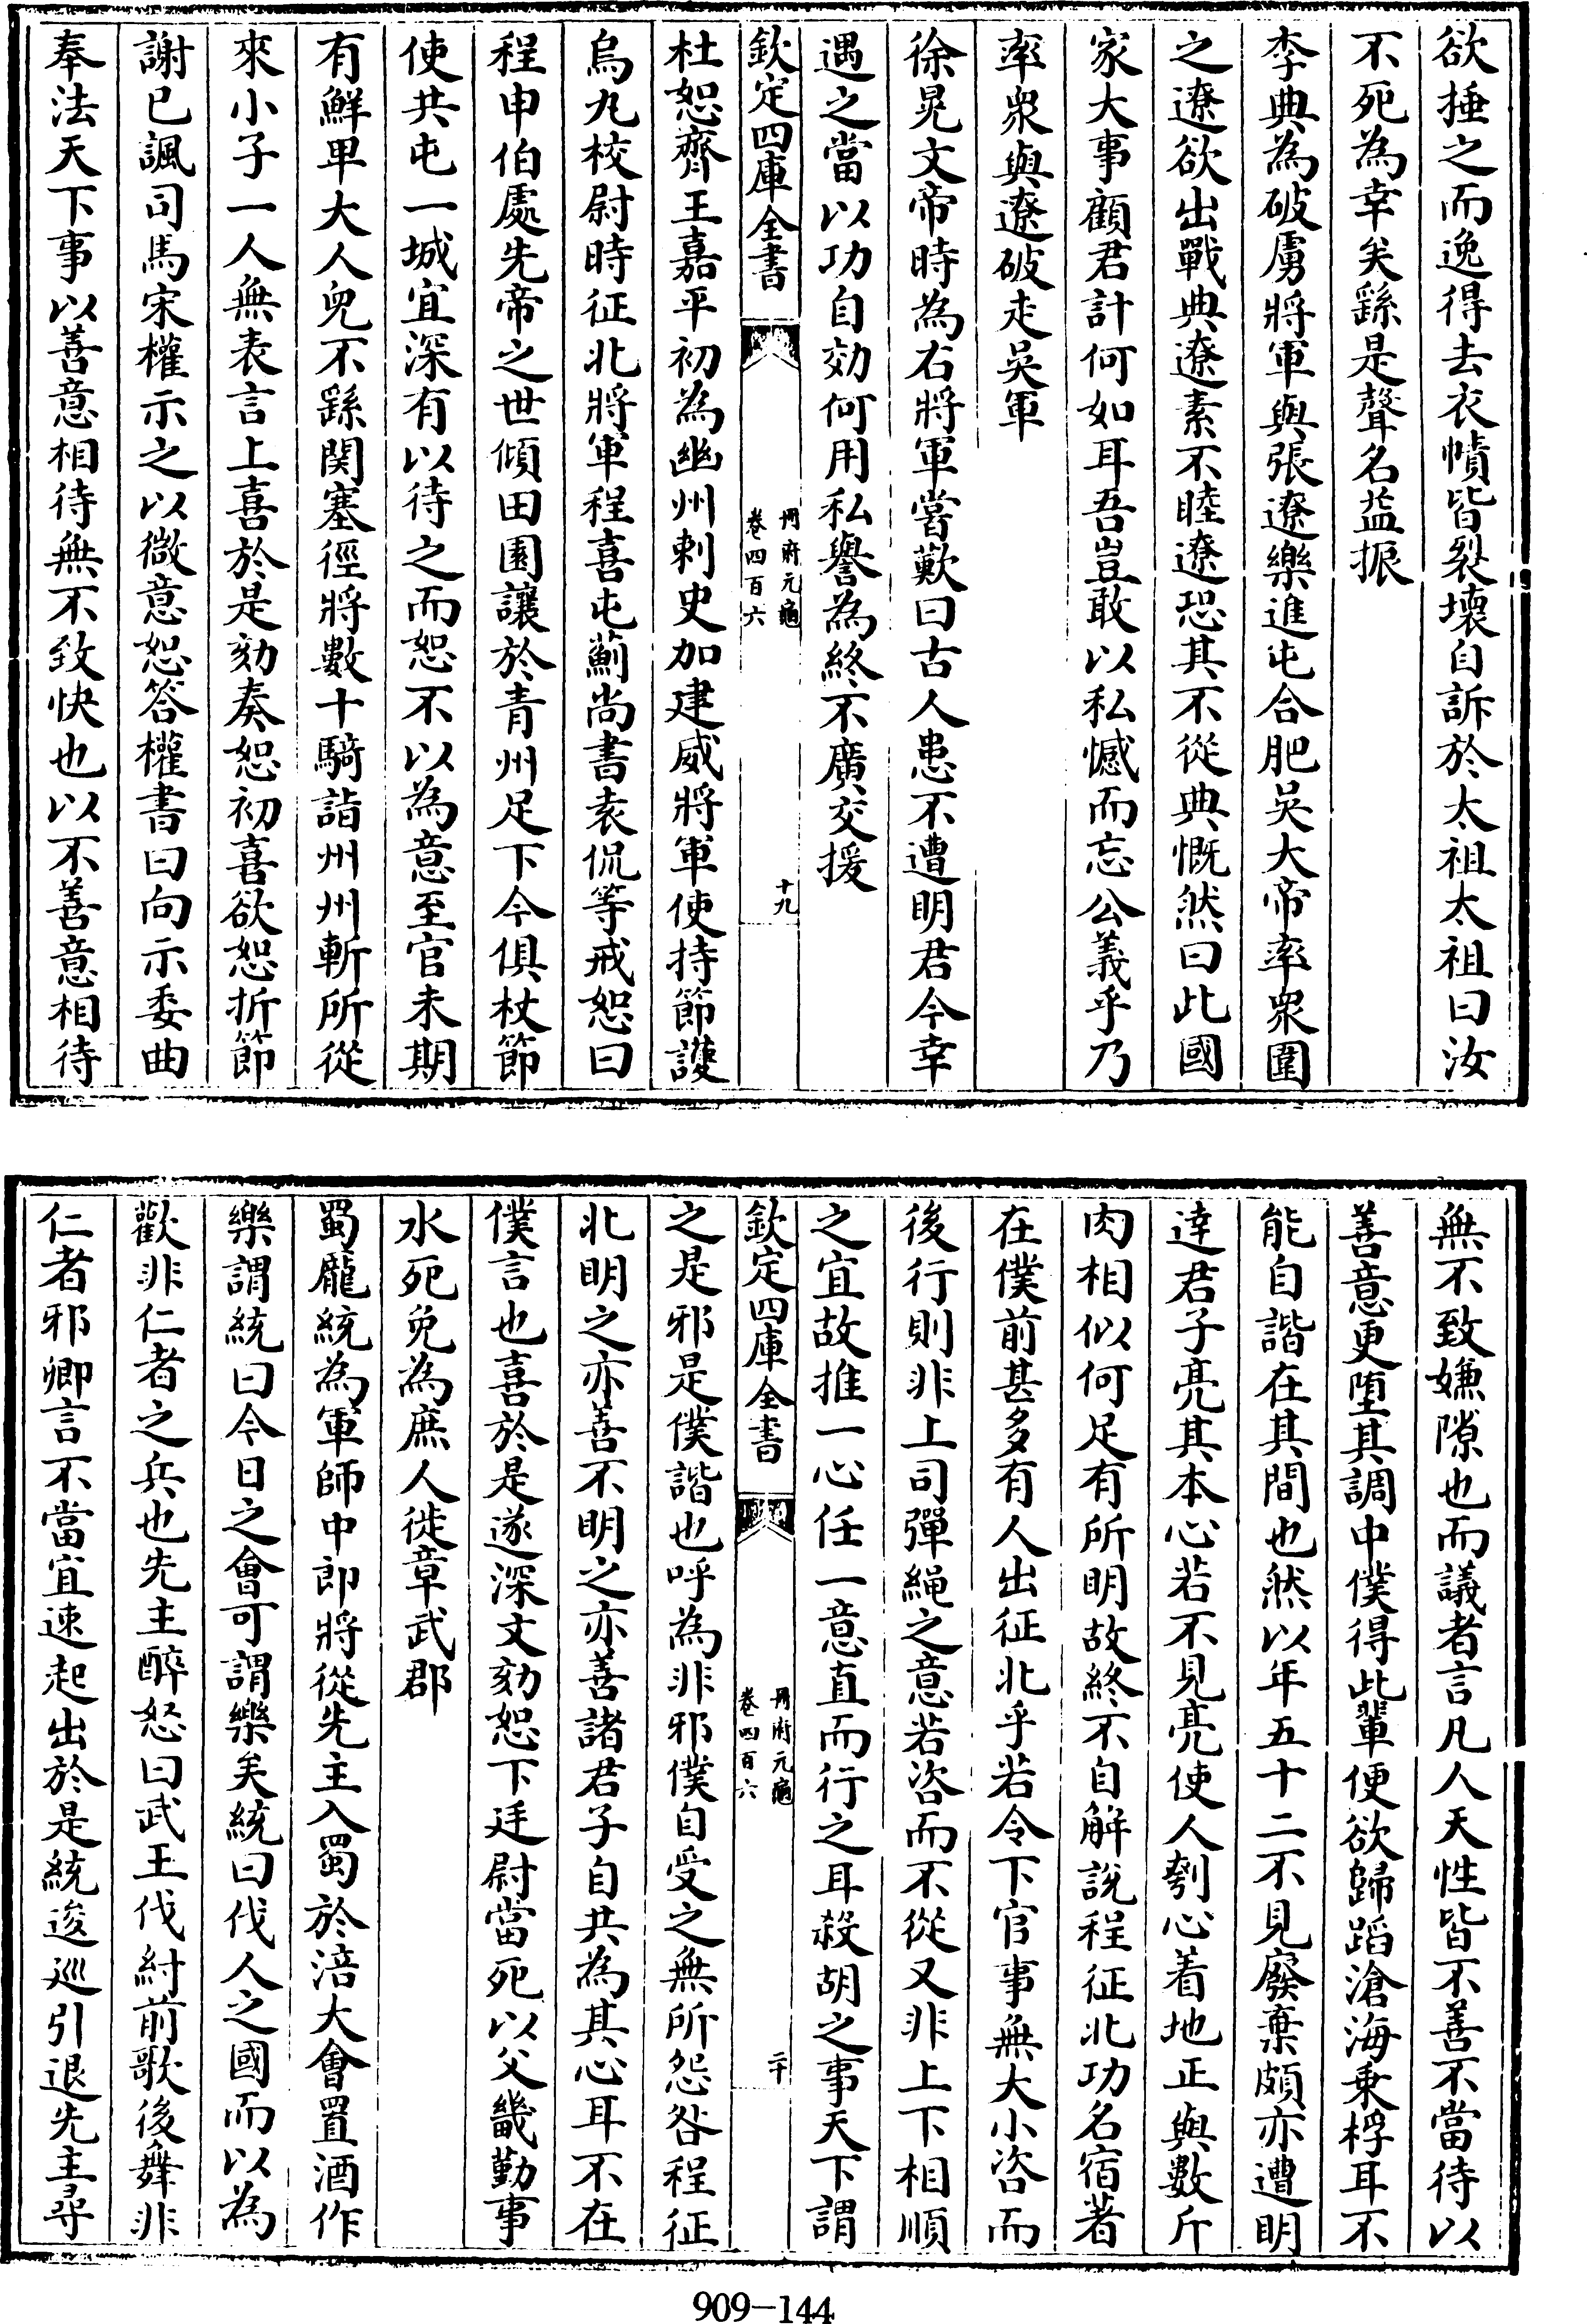 欲捶之而逸得去衣幘皆裂壞自訴於太祖太祖曰汝
不死為幸矣繇是聲名益振
李典為破虜將軍與張遼樂進屯合肥吳大帝率衆圍
之遼欲出戰典遼素不睦遼恐其不從典慨然曰此國
家大事顧君計何如耳吾豈敢以私憾而忘公義乎乃
率衆與遼破走吳軍
徐晃文帝時為右將軍嘗歎曰古人患不遭明君今幸
遇之當以功自効何用私譽為終不廣交援
欽定四庫全書
冊府元龜
卷四百六
十九
杜恕齊王嘉平初為幽州刺史加建威將軍使持節護
烏丸校尉時征北將軍程喜屯薊尚書袁侃等戒恕曰
程申伯處先帝之世傾田園讓於青州足下今俱杖節
使共屯一城宜深有以待之而恕不以為意至官未期
有鮮卑大人兒不繇関塞徑將數十騎詣州州斬所從
來小子一人無表言上喜於是劾奏恕初喜欲恕折節
謝已諷司馬宋權示之以微意恕答權書曰向示委曲
奉法天下事以善意相待無不致快也以不善意相待
無不致嫌隙也而議者言凡人天性皆不善不當待以
善意更墮其調中僕得此輩便欲歸蹈滄海乗桴耳不
能自諧在其間也然以年五十二不見廢棄頗亦遭明
逹君子亮其本心若不見亮使人刳心着地正與數斤
肉相似何足有所明故終不自解說程征北功名宿著
在僕前甚多有人出征北乎若令下官事無大小咨而
後行則非上司彈繩之意若咨而不從又非上下相順
之宜故推一心任一意直而行之耳殺胡之事天下謂
欽定四庫全書
冊府元龜
卷四百六
二十
之是邪是僕諧也呼為非邪僕自受之無所怨咎程征
北明之亦善不明之亦善諸君子自共為其心耳不在
僕言也喜於是遂深文劾恕下廷尉當死以父畿勤事
水死免為庶人徙章武郡
蜀龐統為軍師中郎將從先主入蜀於涪大會置酒作
樂謂統曰今日之會可謂樂矣統曰伐人之國而以為
歡非仁者之兵也先主醉怒曰武王伐紂前歌後舞非
仁者邪卿言不當宜速起出於是統逡巡引退先主尋
909-144